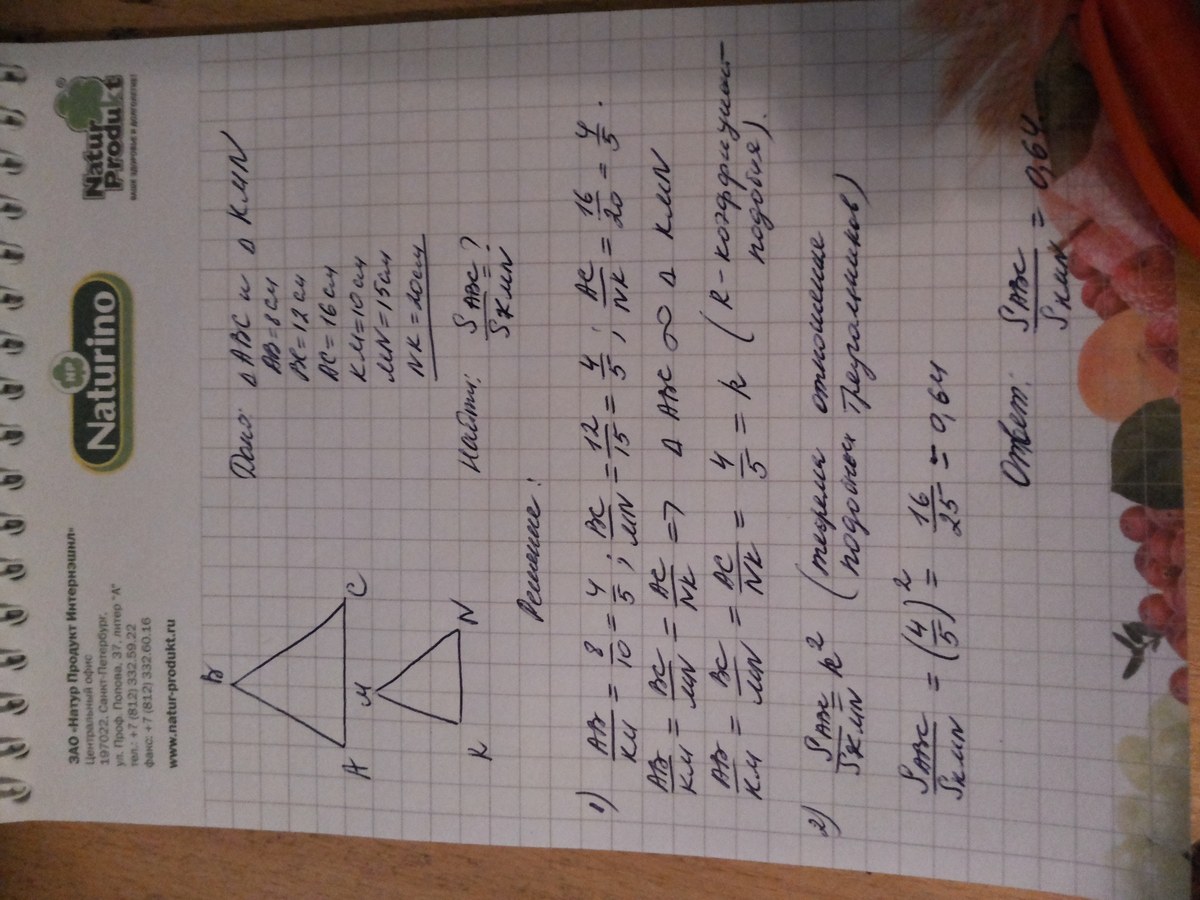 ЗАО «Натур Продукт Интернэшнл»
Центральный офис
197022, Санкт-Петербург,
ул. Проф. Попова, 37, литер "А"
тел.: +7 (812) 332.59.22
факс: +7 (812) 332.60.16
www.natur-produkt.ru
HP
Naturino
Natur
Produkt
ВАШЕ ЗДОРОВЬЕ И ДОЛГОЛЕТИЕ
B
A C
M
K N
Дано: Δ ABC и Δ KMN
AB = 8 см
BC = 12 см
AC = 16 см
KM = 10 см
MN = 15 см
NK = 20 см
Найти: S ABC / S KMN = ?
Решение:
1) AB/KM = 8/10 = 4/5 ; BC/MN = 12/15 = 4/5 ; AC/NK = 16/20 = 4/5 .
AB/KM = BC/MN = AC/NK => Δ ABC ∞ Δ KMN
AB/KM = BC/MN = AC/NK = 4/5 = k (k - коэффициент
подобия).
2) S ABC / S KMN = k² (теорема отношение
подобных треугольников)
S ABC / S KMN = (4/5)² = 16/25 = 0,64
Ответ: S ABC / S KMN = 0,64.